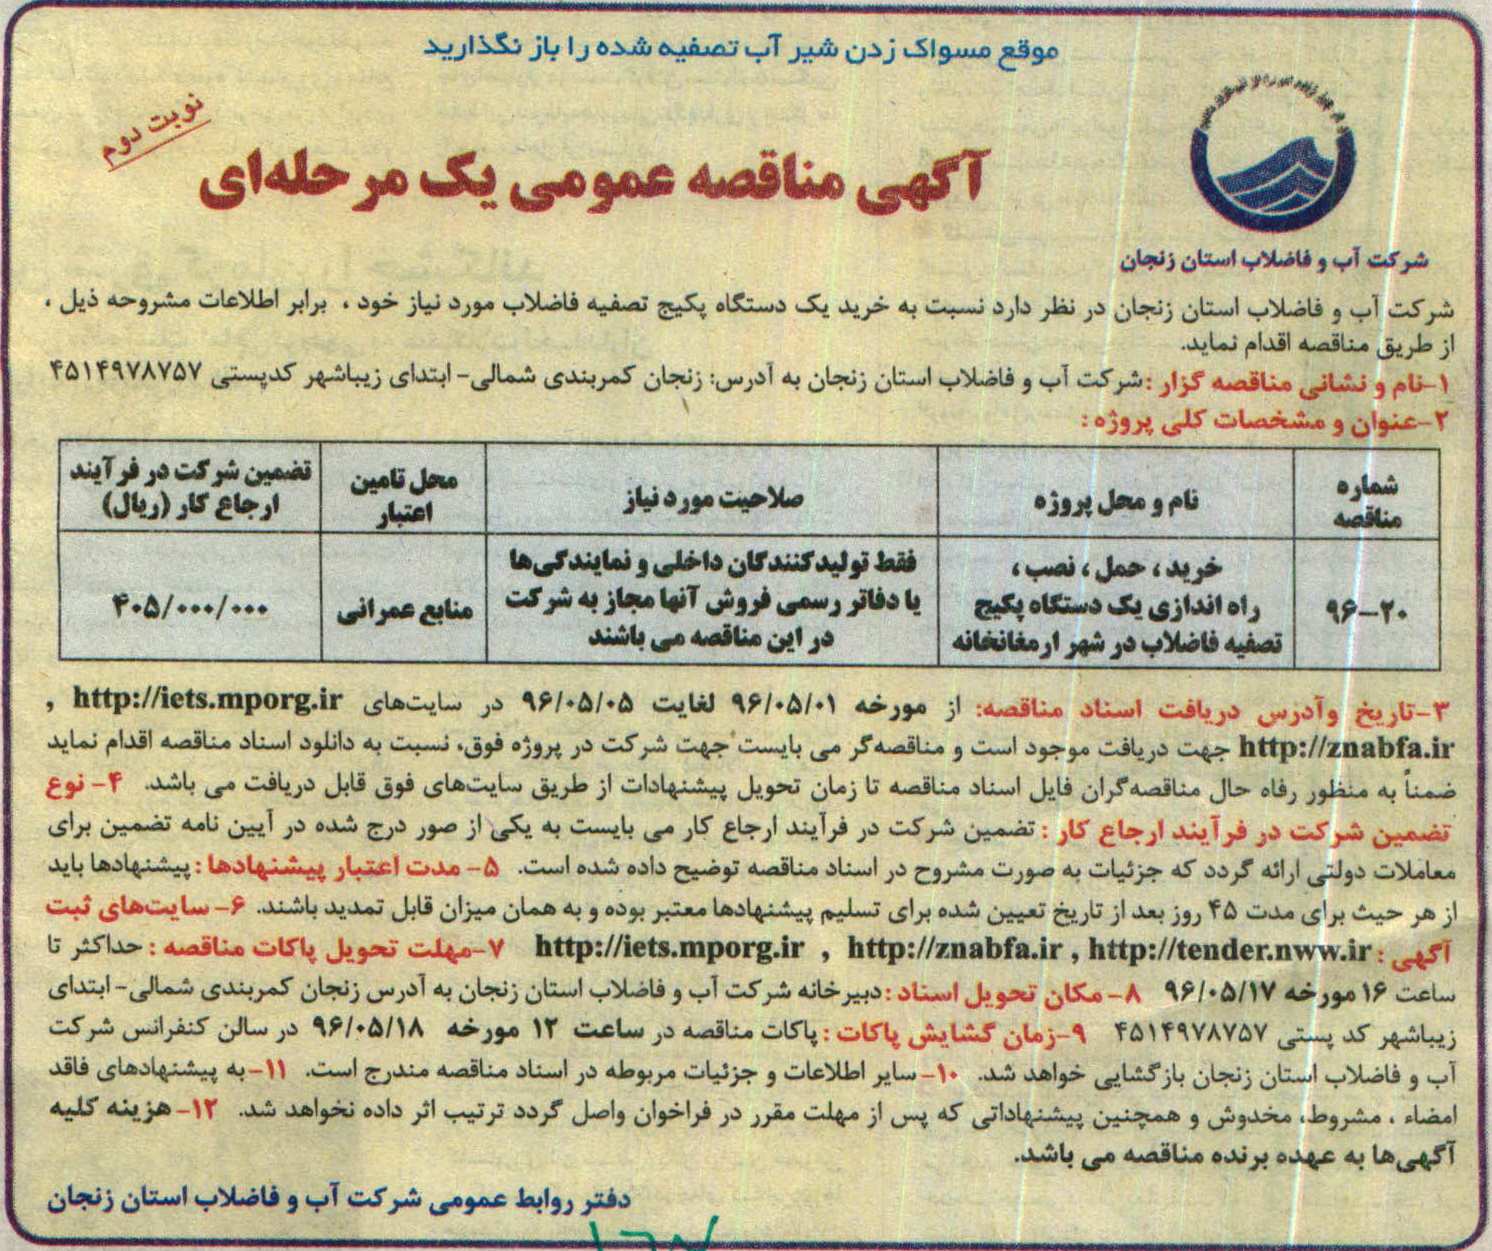 موقع مسواک زدن شیر آب تصفیه شده را باز نگذارید
نوبت دوم
آگهی مناقصه عمومی یک مرحله‌ای
شرکت آب و فاضلاب استان زنجان
شرکت آب و فاضلاب استان زنجان در نظر دارد نسبت به خرید یک دستگاه پکیج تصفیه فاضلاب مورد نیاز خود ، برابر اطلاعات مشروحه ذیل ،
از طریق مناقصه اقدام نماید.
۱-نام و نشانی مناقصه گزار :شرکت آب و فاضلاب استان زنجان به آدرس: زنجان کمربندی شمالی- ابتدای زیباشهر کدپستی ۴۵۱۴۹۷۸۷۵۷
۲-عنوان و مشخصات کلی پروژه :
شماره مناقصه
نام و محل پروژه
صلاحیت مورد نیاز
محل تامین اعتبار
تضمین شرکت در فرآیند ارجاع کار (ریال)
۹۶-۲۰
خرید ، حمل ، نصب ،
راه اندازی یک دستگاه پکیج
تصفیه فاضلاب در شهر ارمغانخانه
فقط تولیدکنندگان داخلی و نمایندگی‌ها
یا دفاتر رسمی فروش آنها مجاز به شرکت
در این مناقصه می باشند
منابع عمرانی
۴۰۵/۰۰۰/۰۰۰
۳-تاریخ وآدرس دریافت اسناد مناقصه: از مورخه ۹۶/۰۵/۰۱ لغایت ۹۶/۰۵/۰۵ در سایت‌های http://iets.mporg.ir ,
http://znabfa.ir جهت دریافت موجود است و مناقصه‌گر می بایست جهت شرکت در پروژه فوق، نسبت به دانلود اسناد مناقصه اقدام نماید
ضمناً به منظور رفاه حال مناقصه‌گران فایل اسناد مناقصه تا زمان تحویل پیشنهادات از طریق سایت‌های فوق قابل دریافت می باشد. ۴- نوع
تضمین شرکت در فرآیند ارجاع کار : تضمین شرکت در فرآیند ارجاع کار می بایست به یکی از صور درج شده در آیین نامه تضمین برای
معاملات دولتی ارائه گردد که جزئیات به صورت مشروح در اسناد مناقصه توضیح داده شده است. ۵- مدت اعتبار پیشنهادها : پیشنهادها باید
از هر حیث برای مدت ۴۵ روز بعد از تاریخ تعیین شده برای تسلیم پیشنهادها معتبر بوده و به همان میزان قابل تمدید باشند. ۶- سایت‌های ثبت
آگهی : http://iets.mporg.ir , http://znabfa.ir , http://tender.nww.ir ۷-مهلت تحویل پاکات مناقصه : حداکثر تا
ساعت ۱۶ مورخه ۹۶/۰۵/۱۷ ۸- مکان تحویل اسناد :دبیرخانه شرکت آب و فاضلاب استان زنجان به آدرس زنجان کمربندی شمالی- ابتدای
زیباشهر کد پستی ۴۵۱۴۹۷۸۷۵۷ ۹-زمان گشایش پاکات : پاکات مناقصه در ساعت ۱۲ مورخه ۹۶/۰۵/۱۸ در سالن کنفرانس شرکت
آب و فاضلاب استان زنجان بازگشایی خواهد شد. ۱۰-سایر اطلاعات و جزئیات مربوطه در اسناد مناقصه مندرج است. ۱۱-به پیشنهادهای فاقد
امضاء ، مشروط، مخدوش و همچنین پیشنهاداتی که پس از مهلت مقرر در فراخوان واصل گردد ترتیب اثر داده نخواهد شد. ۱۲-هزینه کلیه
آگهی‌ها به عهده برنده مناقصه می باشد.
دفتر روابط عمومی شرکت آب و فاضلاب استان زنجان